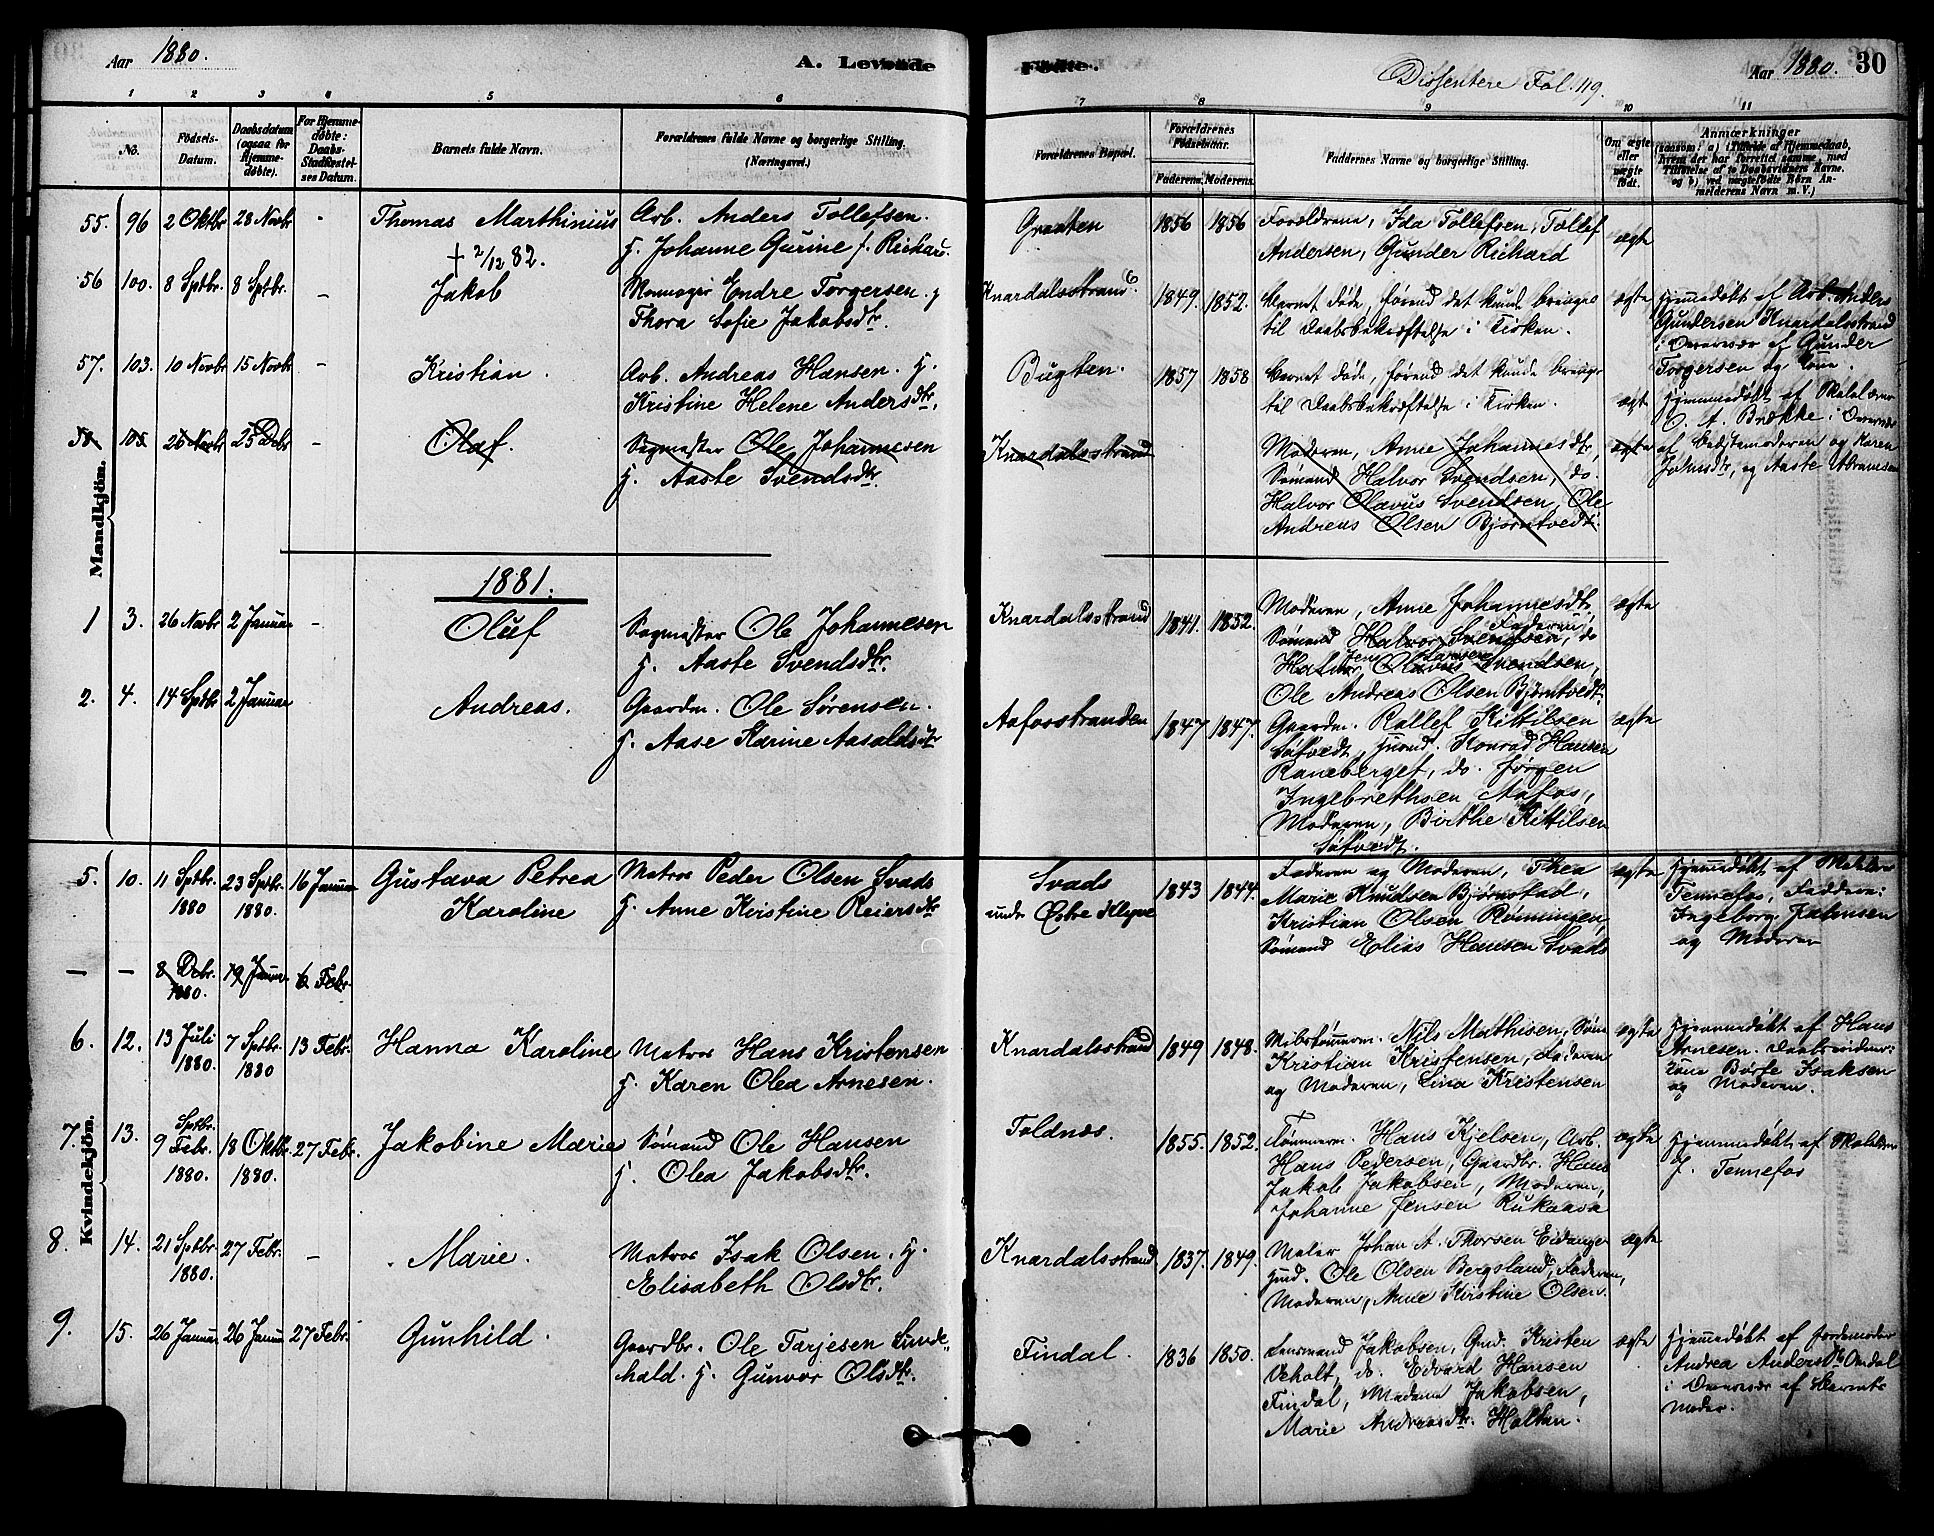 Aar 1880.
A. Levende
Fødte.
Dissentere Fol. 119.
Aar 1880. 30
1 2 3 4 5 6 7 8 9 10 11
No.
Fødsels-Datum.
Daabsdatum (ogsaa for Hjemmedøbte).
For Hjemmedøbte: Daabs-Stadfæstelses Datum.
Barnets fulde Navn.
Forældrenes fulde Navne og borgerlige Stilling. (Næringsvei.)
Forældrenes Bopæl.
Forældrenes Fødselsaar.
Faderens. Moderens.
Faddernes Navne og borgerlige Stilling.
Om ægte eller uægte født.
Anmærkninger
(saasom: a) i Tilfælde af Hjemmedaab, hvem der har forrettet samme, med Tilføielse af to Daabsvidners Navne, og b) ved uægtefødte Børn Anmelderens Navn m. V.)
Mandkjön.
55. 96 2 Oktbr 28 Novbr - Thomas Marthinius Arb. Anders Tollefsen.
+ 2/12 82. H. Johanne Gurine f. Richard.
Graaten 1856 1856 Forældrene, Ida Tollefsen, Tollef
Andersen, Gunder Richard ægte
56 100. 8 Sptbr. 8 Sptbr. - Jakob Endre Torgersen. H
Thora Sofie Jakobsdtr.
Knardalsstrand 1849. 1852. Barnet døde, førend det kunde bringes
til Daabsbekræftelse i Kirken. ægte
Hjemmedøbt af Arb. Anders
Gundersen Knardalsstrand
i Overvær af Gunder
Torgersen og Kone.
57. 103. 10 Novbr 15 Novbr - Kristian. Arb. Andreas Hansen. H.
Kristine Helene Andersdtr.
Bugten. 1857 1858 Barnet døde, førend det kunde bringes
til Daabsbekræftelse i Kirken. ægte
Hjemmedøbt af Skolelærer
A. Brække i Overvær
af Bedstemoderen og Karen
Johnsdtr, og Aaste Abramsen
58 105 26 Novbr 25 Debr - Olaf. Sagmester Ole Johannesen
H. Aaste Svendsdtr.
Knardalsstrand Moderen, Anne Johannesdtr, ægte
Sømand Halvor Svendsen, do.
Halvor Olavus Svendsen, Ole
Andreas Olsen Bjørntvedt.
1881.
1 3. 26 Novbr 2 Januar - Oluf Sagmester Ole Johannesen
H. Aaste Svendsdtr.
Knardalsstrand 1841. 1852. Moderen, Anne Johannesdtr, ægte
Faderen,
Sømand Halvor Svendsen, do
Jens Larsen
Halvor Olavus Svendsen,
Ole Andreas Olsen Bjørntvedt.
2. 4. 14 Sptbr 2 Januar Andreas. Gaardm. Ole Sørensen.
H. Aase Karine Aasoldsdtr
Aafosstranden 1847 1847. Gaardm. Rollef Kittilsen ægte
Konrad Hansen
Raneberget, do. Jørgen
Ingebrethsen Aafos,
Moderen, Birthe Kittilsen
Kvindekjön.
5. 10. 11 Sptbr. 1880 23 Sptbr. 1880. 16 Januar Gustava Petrea
Karoline
Matros Peder Olsen Svads
H. Anne Kristine Reiersdtr
Svads
under Østre Klyve
1843 1844. Faderen og Moderen, Thea ægte
Marie Knudsen Bjørnstad,
Kristian Olsen Rønningen,
Sømand Elias Hansen Svads
Hjemmedøbt af
Tennefos, Faddere:
Ingeborg Johnsen
og Moderen
- - 8 Debr. 1880. 19 Januar 6 Febr.
6. 12. 13 Juli 1880. 7 Sptbr. 1880 13 Febr. Hanna Karoline Matros Hans Kristensen
H. Karen Olea Arnesen.
Knardalsstrand 1849 1848. Nils Mathisen, Søm ægte
Kristian Kristensen, Faderen
og Moderen, Lina Kristensen
Hjemmedøbt af Hans
Arnesen. Daabsvidner:
Kone Børte Isaksen
og Moderen.
7. 13. Sptbr.
9 Febr. 1880. 18 Oktbr. 1880. 27 Febr. Jakobine Marie Sømand Ole Hansen
H. Olea Jakobsdtr.
Toldnæs. 1855. 1852. Tømmerm. Hans Kjelsen, Arb. ægte
Hans Pedersen, Gaardbr. Hans
Jakob Jakobsen, Moderen,
Johanne Jensen Rukaasa
Hjemmedøbt af Skolelærer
J. Tennefos
8. 14. 21 Sptbr. 1880. 27 Febr. - Marie. Matros Isak Olsen. H.
Elisabeth Olsdtr.
Knardalsstrand 1837. 1849. Maler Johan A. Thorsen Eidanger ægte
Ole Olsen Bergsland, Faderen,
Moderen, Anne Kirstine Olsen.
9. 15. 26 Januar 26 Januar 27 Febr. Gunhild. Gaardbr. Ole Tarjesen Lunde-
hald. H. Gunvor Olsdtr.
Findal. 1836 1850. Lensmand Jakobsen, Gmd. Kristen ægte
Okholt, do. Edvard Hansen
Findal, Madame Jakobsen,
Marie Andreasdtr. Holtan.
Hjemmedøbt af Jordemoder
Andrea Andersdtr Omdal
i Overvær af Barnets
Moder.